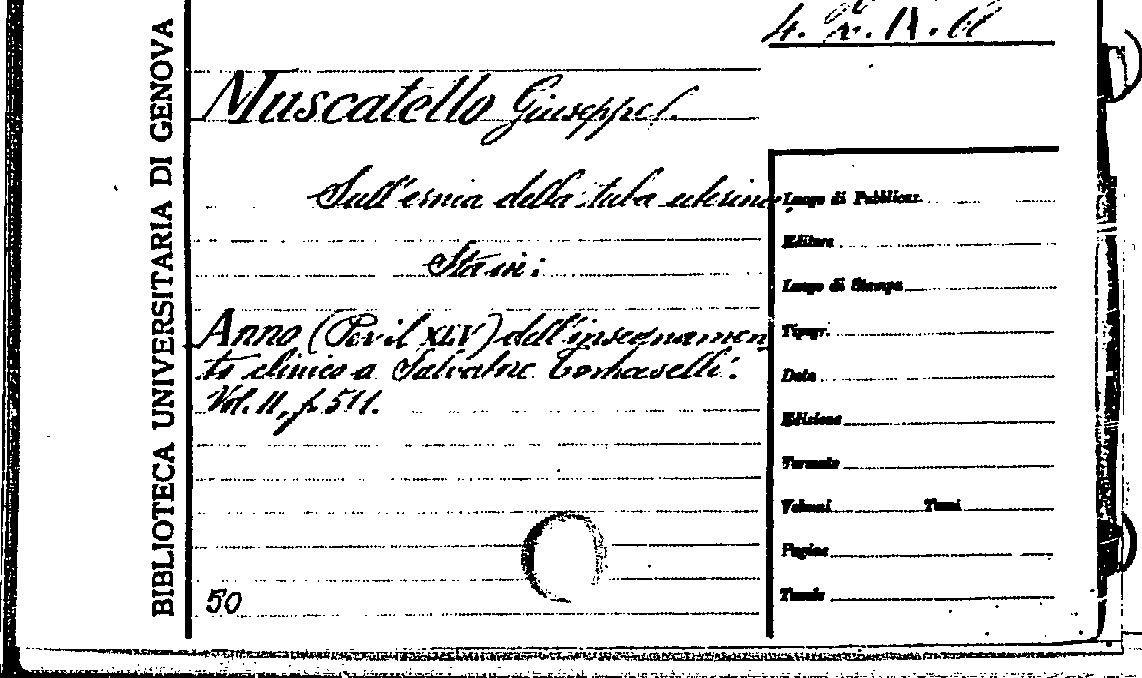 BIBLIOTECA UNIVERSITARIA DI GENOVA
Muscatello Giuseppe.
Sull'ernia della tuba uterina.
Sta in:
Anno (Per il XLV) dell'insegnamen
to clinico a Salvatore Tomaselli.
Vol. II, p. 511.
50
Luogo di Pubblicaz.
Editore
Luogo di Stampa
Tipogr.
Data
Edizione
Formato
Volumi Tomi
Pagine